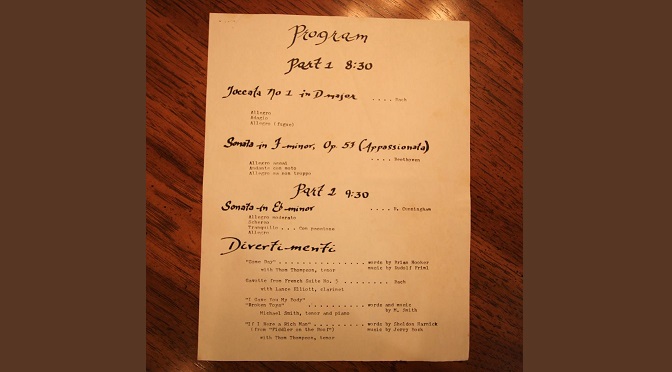 Program
Part 1 8:30
Toccata No 1 in D major .... Bach
Allegro
Adagio
Allegro (fugue)
Sonata in F minor, Op. 57 (Appassionata)
.... Beethoven
Allegro assai
Andante con moto
Allegro ma non troppo
Part 2 9:30
Sonata in Eb minor .... R. Cunningham
Allegro moderato
Scherzo
Tranquillo ... Con passione
Allegro
Divertimenti
"Some Day" ................ words by Brian Hooker
with Thom Thompson, tenor music by Rudolf Friml
Gavotte from French Suite No. 5 ........ Bach
with Lance Elliott, clarinet
"I Gave You My Body"
"Broken Toys" ........... words and music
Michael Smith, tenor and piano by M. Smith
"If I Were a Rich Man" .......... words by Sheldon Harnick
(from "Fiddler on the Roof") music by Jerry Bock
with Thom Thompson, tenor